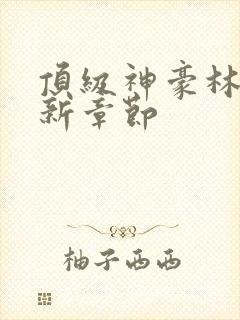 頂級神豪林
新章節
柚子西西